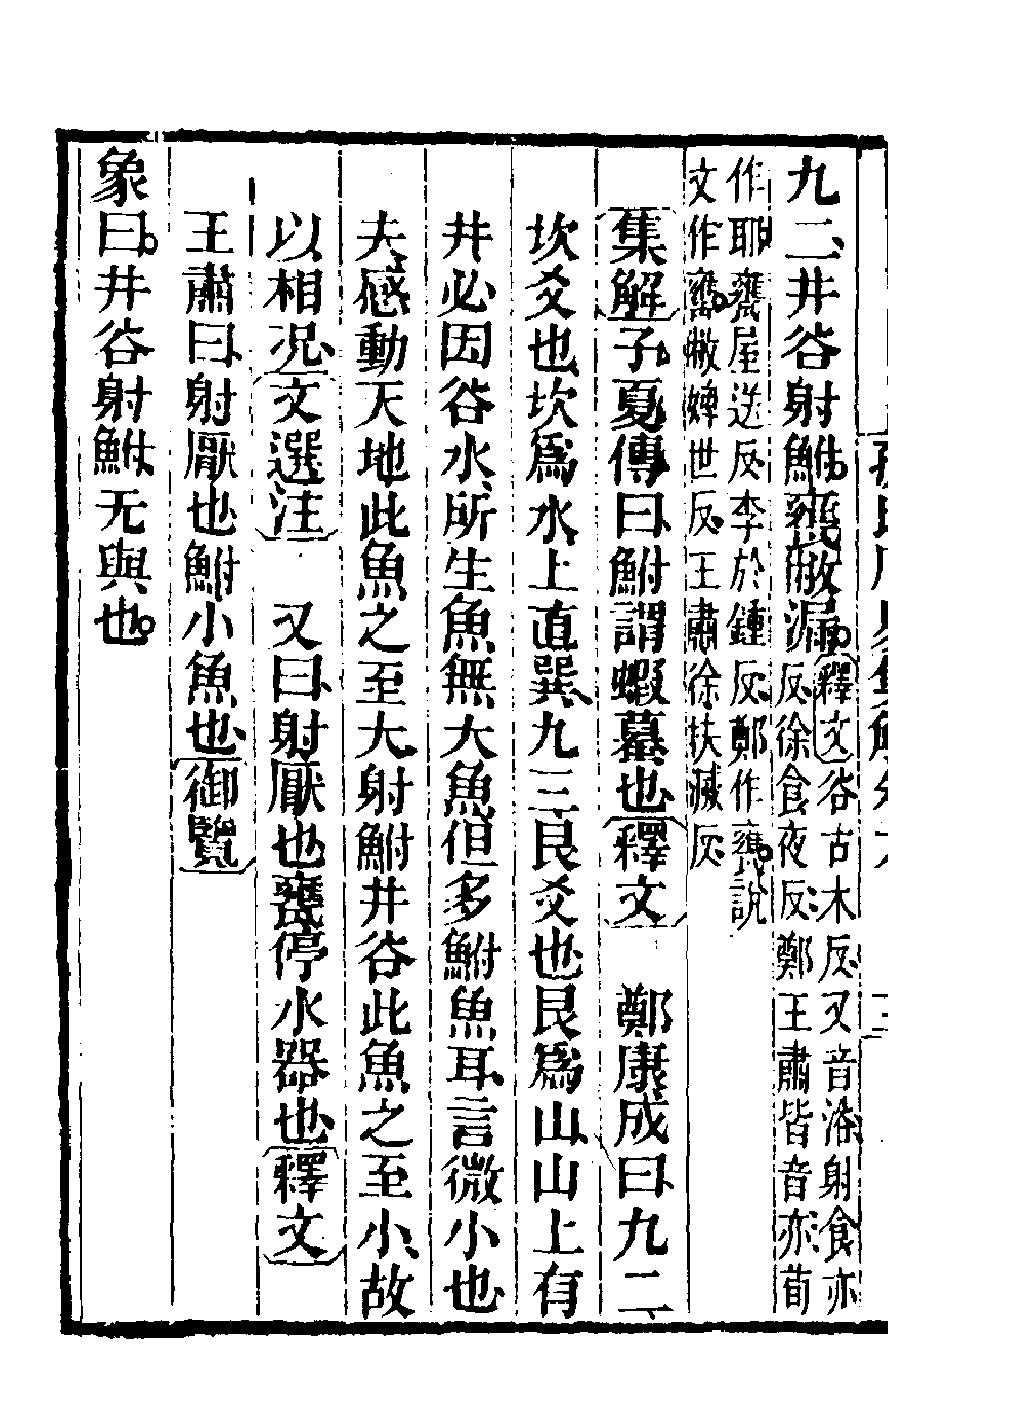 九二井谷射鮒甕敝漏釋文谷古木反又音浴射食亦
反徐食夜反鄭王肅皆音亦荀
作耶甕屋送反李於鍾反鄭作甕說
文作敝婢世反王肅徐扶滅反
集解子夏傳曰鮒謂蝦蟇也釋文　鄭康成曰九二
坎爻也坎爲水上直巽九三艮爻也艮爲山山上有
井必因谷水所生魚無大魚但多鮒魚耳言微小也
夫感動天地此魚之至大射鮒井谷此魚之至小故
以相況文選注　又曰射厭也甕停水器也釋文
王肅曰射厭也鮒小魚也御覽
象曰井谷射鮒无與也